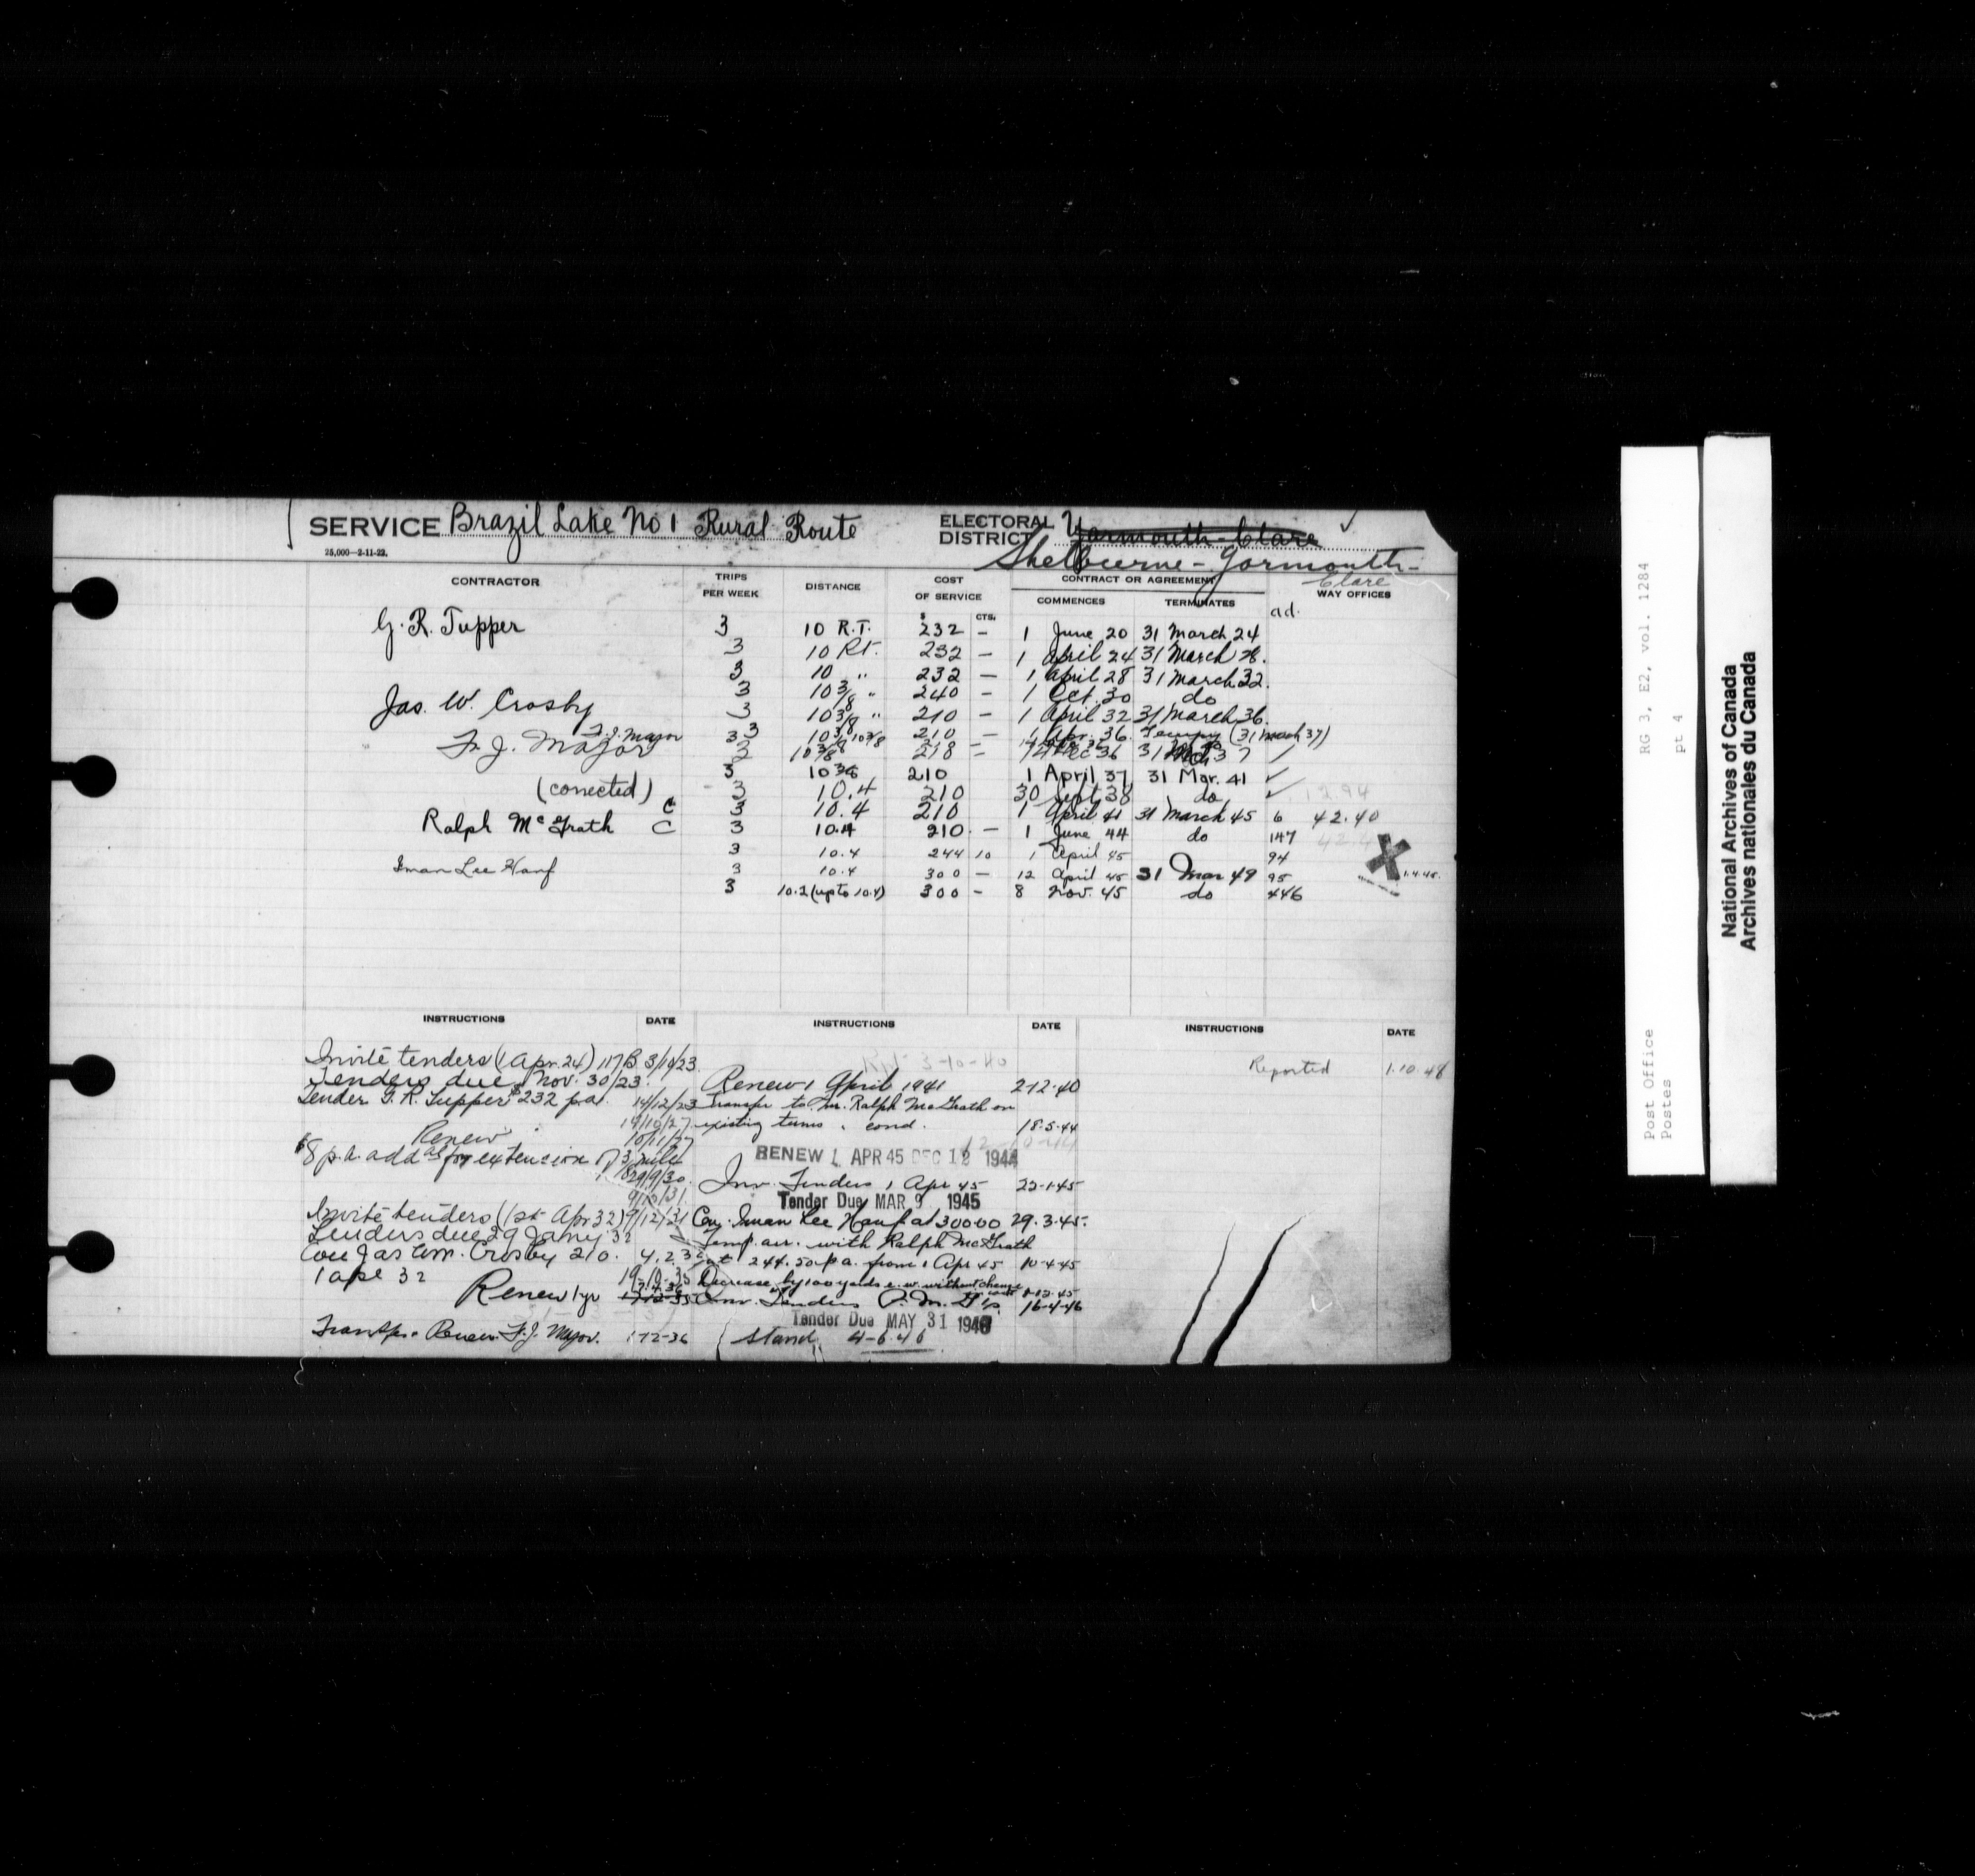 SERVICE Brazil Lake No 1 Rural Route ELECTORAL DISTRICT Yarmouth-Clare
25,000—2-11-22.
Shelburne - Yarmouth - Clare
CONTRACTOR TRIPS PER WEEK DISTANCE COST OF SERVICE CONTRACT OR AGREEMENT WAY OFFICES
$ CTS. COMMENCES TERMINATES ad.
G. R. Tupper 3 10 R.T. 232 - 1 June 20 31 March 24
3 10 Rt. 232 - 1 April 24 31 March 28.
3 10 " 232 - 1 April 28 31 March 32.
3 10 3/8 " 240 - 1 Oct. 30 do
Jas. W. Crosby 3 10 3/8 " 210 - 1 April 32 31 March 36.
F. J. Major 3 10 3/8 210 - 1 Apr. 36. Tempy (31 March 37)
F. J. Major 3 10 3/8 218 - 36 31 37
3 10 3/8 210 1 April 37 31 Mar. 41
(corrected) 3 10.4 210 30 Sept 38 do
C 3 10.4 210 1 April 41 31 March 45 6 42.40
Ralph McGrath C 3 10.4 210. - 1 June 44 do 147
3 10.4 244 10 1 April 45 94
Iman Lee Hanf 3 10.4 300 - 12 April 45 31 Mar 49 95 1.4.45.
3 10.2 (up to 10.4) 300 - 8 Nov. 45 do 446
INSTRUCTIONS DATE
Invite tenders (1 Apr. 24) 117B 3/10/23.
Tenders due Nov. 30/23.
Tender G. R. Tupper $232 p.a. 14/12/23
14/10/27
Renew 10/11/27
$8 p.a. addal for extension of 3/8 mile
29/9/30.
9/10/31.
Invite tenders (1st Apr 32) 9/12/31
Tenders due 29 Jany 32
Con Jas Wm. Crosby 210. 4.2.32
1 apl 32 19-10-35
Renew 1 yr
Transfer Renew F. J. Major. 172-36
INSTRUCTIONS DATE
3-10-40
Renew 1 April 1941 2-12-40
Transfer to Mr. Ralph McGrath on
existing terms & cond. 18.5.44
12-10-44
RENEW 1 APR 45 DEC 12 1944
Inv. Tenders 1 Apr 45 22-1-45
Tender Due MAR 9 1945
Con. Iman Lee Hanf at 300.00 29.3.45.
Temp. arr. with Ralph McGrath
at 244.50 p.a. from 1 Apr 45 10-4-45
Decrease by 100 yards e.w. without change
Inv. Tenders P.M. G's. 16-4-46
Tender Due MAY 31 1946
Stand 4-6-46
INSTRUCTIONS DATE
Reported 1.10.48
Post Office RG 3, E2, vol. 1284
Postes pt 4
National Archives of Canada
Archives nationales du Canada